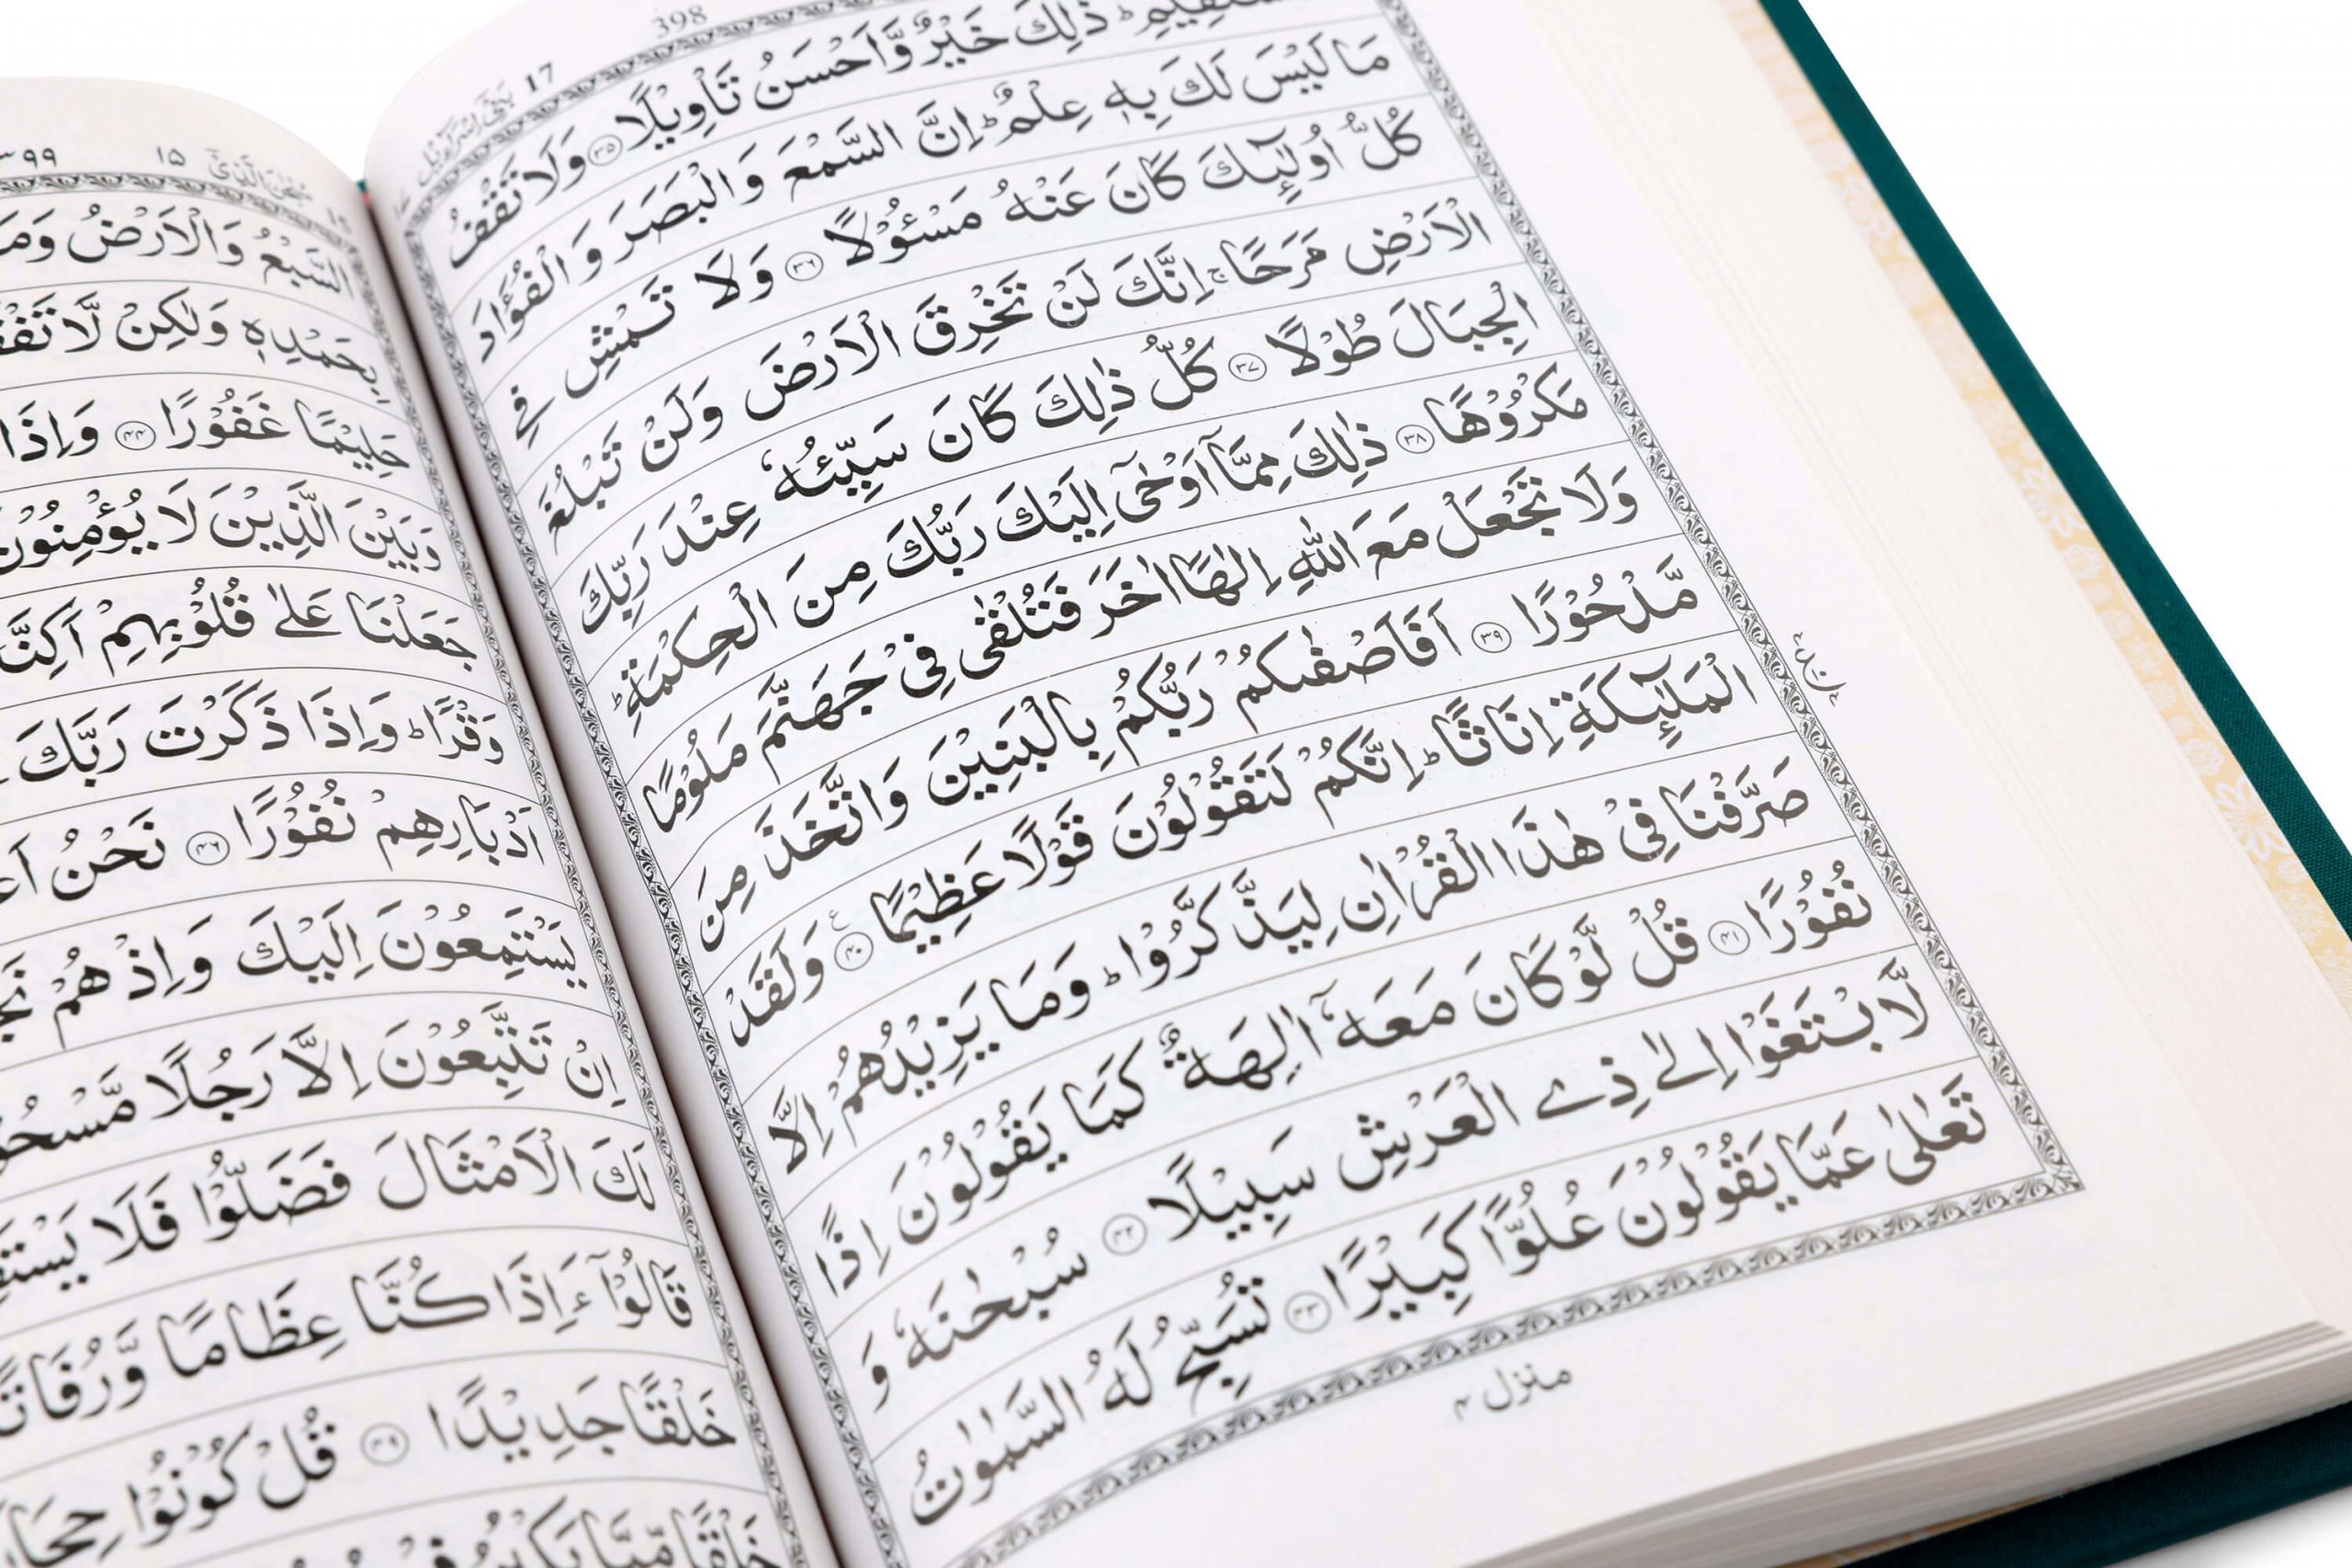 398
بنی اسرآءیل 17
ذٰلِكَ خَيْرٌ وَّاَحْسَنُ تَاْوِيْلًا ﴿٣٥﴾ وَلَا تَقْفُ
مَا لَيْسَ لَكَ بِهٖ عِلْمٌ ؕ اِنَّ السَّمْعَ وَالْبَصَرَ وَالْفُؤَادَ
كُلُّ اُولٰٓئِكَ كَانَ عَنْهُ مَسْئُوْلًا ﴿٣٦﴾ وَلَا تَمْشِ فِي
الْاَرْضِ مَرَحًا ۚ اِنَّكَ لَنْ تَخْرِقَ الْاَرْضَ وَلَنْ تَبْلُغَ
الْجِبَالَ طُوْلًا ﴿٣٧﴾ كُلُّ ذٰلِكَ كَانَ سَيِّئُهٗ عِنْدَ رَبِّكَ
مَكْرُوْهًا ﴿٣٨﴾ ذٰلِكَ مِمَّاۤ اَوْحٰۤى اِلَيْكَ رَبُّكَ مِنَ الْحِكْمَةِ ؕ
وَلَا تَجْعَلْ مَعَ اللّٰهِ اِلٰهًا اٰخَرَ فَتُلْقٰى فِيْ جَهَنَّمَ مَلُوْمًا
مَّدْحُوْرًا ﴿٣٩﴾ اَفَاَصْفٰىكُمْ رَبُّكُمْ بِالْبَنِيْنَ وَاتَّخَذَ مِنَ
الْمَلٰٓئِكَةِ اِنَاثًا ؕ اِنَّكُمْ لَتَقُوْلُوْنَ قَوْلًا عَظِيْمًا ﴿٤٠﴾ وَلَقَدْ
صَرَّفْنَا فِيْ هٰذَا الْقُرْاٰنِ لِيَذَّكَّرُوْا ؕ وَمَا يَزِيْدُهُمْ اِلَّا
نُفُوْرًا ﴿٤١﴾ قُلْ لَّوْ كَانَ مَعَهٗۤ اٰلِهَةٌ كَمَا يَقُوْلُوْنَ اِذًا
لَّا بْتَغَوْا اِلٰى ذِي الْعَرْشِ سَبِيْلًا ﴿٤٢﴾ سُبْحٰنَهٗ وَ
تَعٰلٰى عَمَّا يَقُوْلُوْنَ عُلُوًّا كَبِيْرًا ﴿٤٣﴾ تُسَبِّحُ لَهُ السَّمٰوٰتُ
منزل ۴
٣٩٩
سُبْحٰنَ الَّذِيْ ١٥
السَّبْعُ وَالْاَرْضُ
بِحَمْدِهٖ وَلٰكِنْ لَّا
حَلِيْمًا غَفُوْرًا ﴿٤٤﴾ وَاِذَا
وَبَيْنَ الَّذِيْنَ لَا يُؤْمِنُوْنَ
جَعَلْنَا عَلٰى قُلُوْبِهِمْ
وَقْرًا ؕ وَاِذَا ذَكَرْتَ رَبَّكَ
اَدْبَارِهِمْ نُفُوْرًا ﴿٤٦﴾ نَحْنُ
يَسْتَمِعُوْنَ اِلَيْكَ وَاِذْ هُمْ
اِنْ تَتَّبِعُوْنَ اِلَّا رَجُلًا
لَكَ الْاَمْثَالَ فَضَلُّوْا فَلَا
قَالُوْۤا ءَاِذَا كُنَّا عِظَامًا وَّرُفَاتًا
خَلْقًا جَدِيْدًا ﴿٤٩﴾ قُلْ كُوْنُوْا
خَلْقًا مِّمَّا يَكْبُرُ